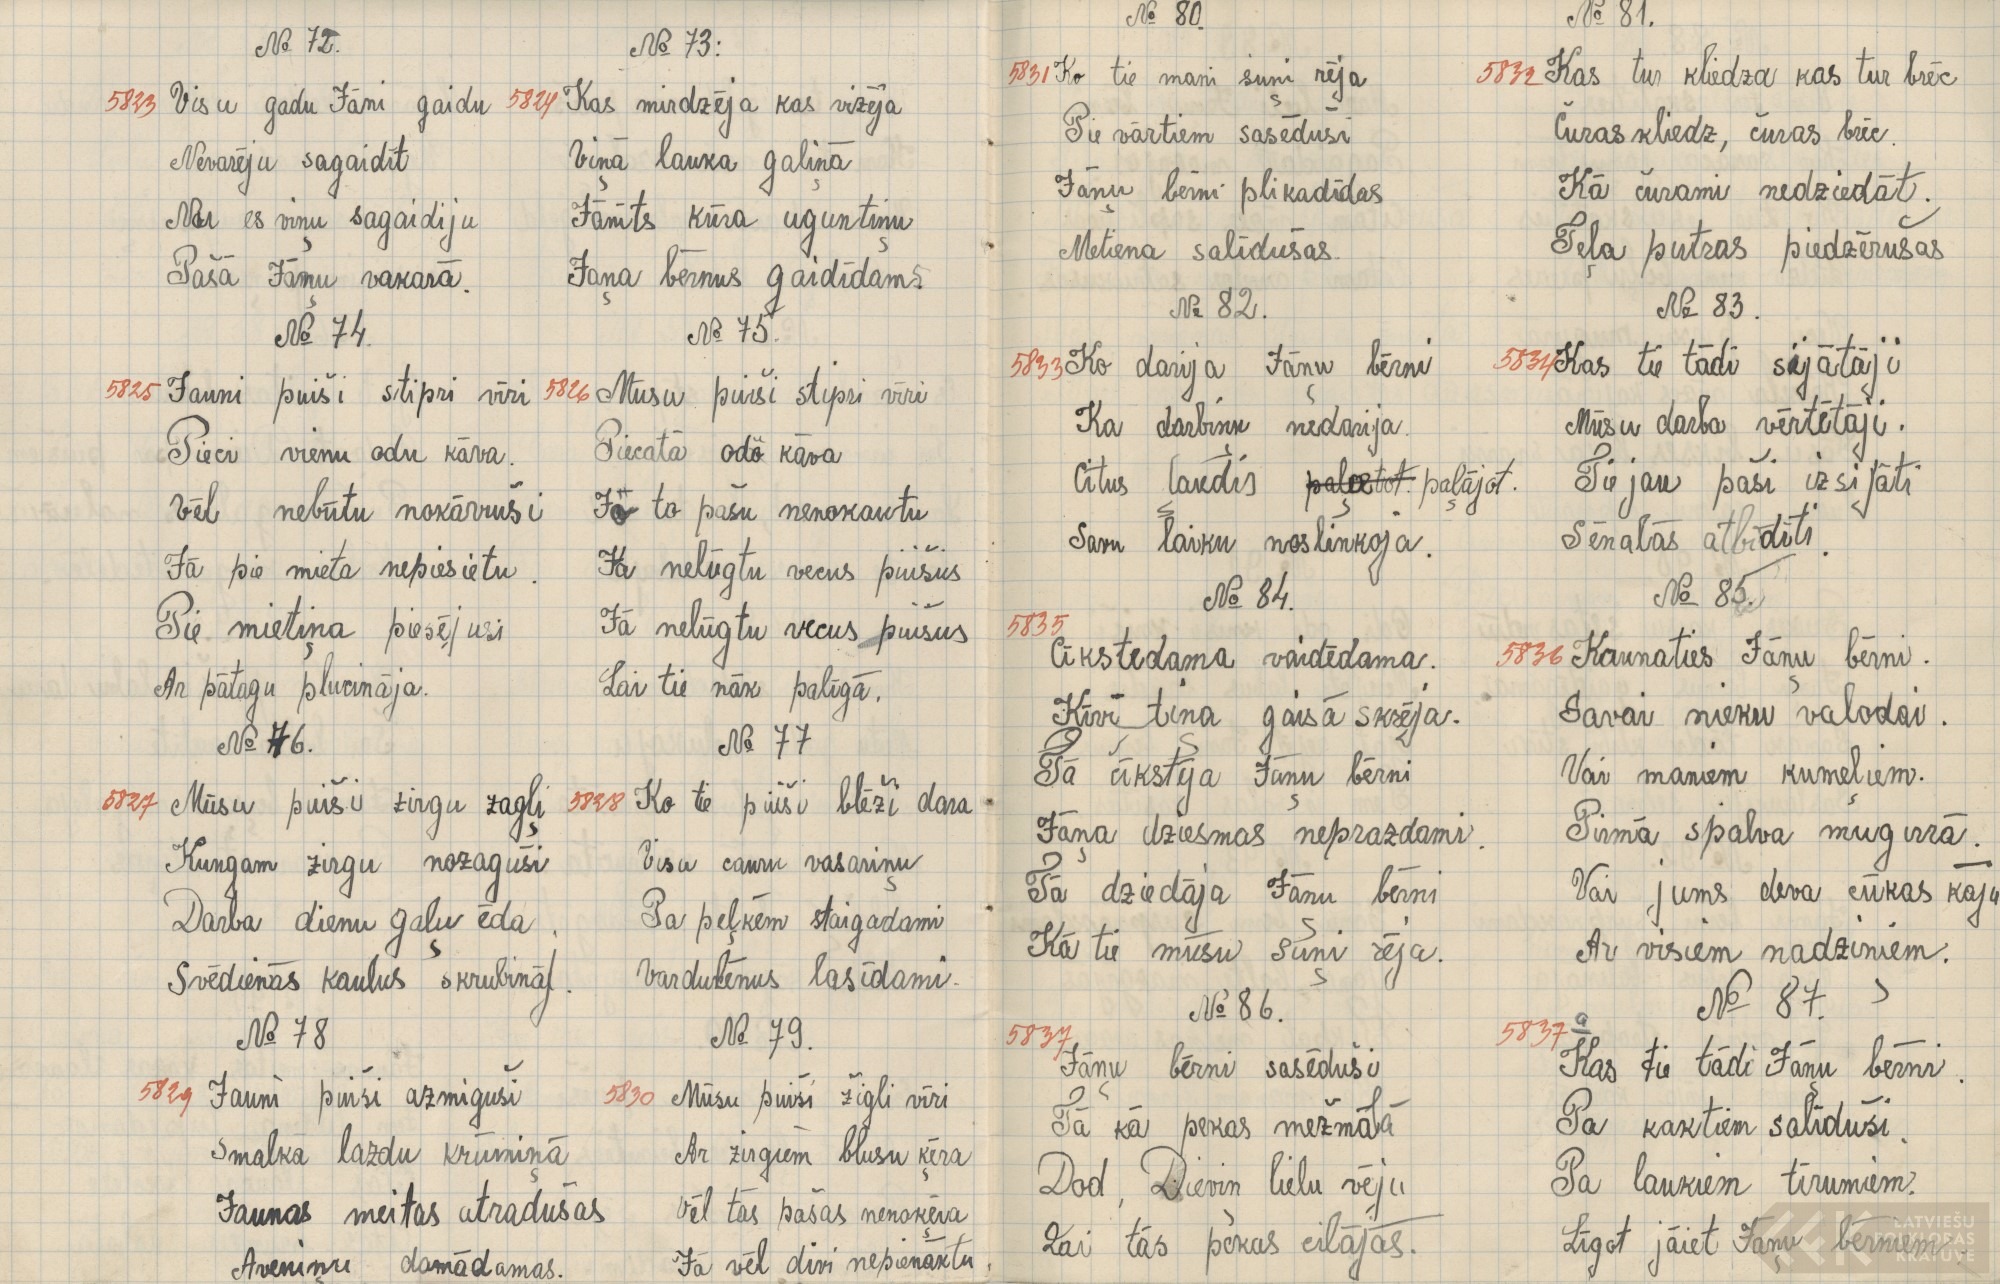 № 72.
5823 Visu gadu Jāni gaidu
Nevarēju sagaidīt
Nu es viņu sagaidiju
Pašā Jāņu vakarā.
№ 73:
5824 Kas mirdzēja kas vizēja
Viņā lauka galiņā
Jānīts kūra uguntiņu
Jaņa bērnus gaidīdams
№ 74.
5825 Jauni puiši stipri vīri
Pieci vienu odu kāva.
Vēl nebūtu nokāvuši
Jā pie mieta nepiesietu.
Pie mietiņa piesējuši
Ar pātagu plucināja.
№ 75.
5826 Mūsu puiši stipri vīri
Piecatā odo kāva
Jā to pašu nenokautu
Kā nelūgtu vecus puišus
Jā nelūgtu vecus puišus
Lai tie nāk palīgā.
№ 76.
5827 Mūsu puiši zirgu zagļi
Kungam zirgu nozaguši
Darba dienu gaļu ēda.
Svēdienās kaulus skrubināj.
№ 77
5828 Ko tie puiši blēži dara
Visu cauru vasariņu
Pa peļķēm staigadami
Vardulēnus lasīdami.
№ 78
5829 Jauni puiši azmiguši
Smalka lazdu krūmiņā
Jaunas meitas atradušas
Aveniņu damādamas.
№ 79.
5830 Mūsu puiši žigli vīri
Ar zirgiem blusu ķēra
Vēl tās pašas nenoķēra
Jā vēl divi nepienāktu.
№ 80.
5831 Ko tie mani suņi rēja
Pie vārtiem sasēduši
Jāņu bērni plikadīdas
Metiena salīdušas.
№ 81.
5832 Kas tur kliedza kas tur brēc
Čuras kliedz, čuras brēc.
Kā čurami nedziedāt.
Teļa putras piedzērušas
№ 82.
5833 Ko darija Jāņu bērni
Ka darbiņu nedarija.
Citus ļaudis paļājot.
Savu laiku noslinkoja.
№ 83.
5834 Kas tie tādi sijātāji
Mūsu darba vērtētāji.
Tie jau paši izsijāti
Sēnalās atbīdīti.
№ 84.
5835
Cīkstedama vaidēdama.
Ķīvītiņa gaisā skrēja.
Tā čīkstēja Jāņu bērni
Jāņa dziesmas neprazdami.
Tā dziedāja Jānu bērni
Kā tie mūsu suņi rēja.
№ 85.
5836 Kaunaties Jāņu bērni.
Savai nieku valodai.
Vai maniem kumeļiem.
Pirmā spalva mugurā.
Vai jums deva cūkas kāju
Ar visiem nadziniem.
№ 86.
5837
Jāņu bērni sasēduši
Tā kā pekas mežmalā
Dod, Dieviņ lielu vēju
Lai tās pekas cilājās.
№ 87.
5837 a
Kas tie tādi Jāņu bērni.
Pa kaktiem salīduši.
Pa laukiem tīrumiem.
Līgot jāiet Jāņu bērniem.
LATVIEŠU
FOLKLORAS
KRĀTUVE